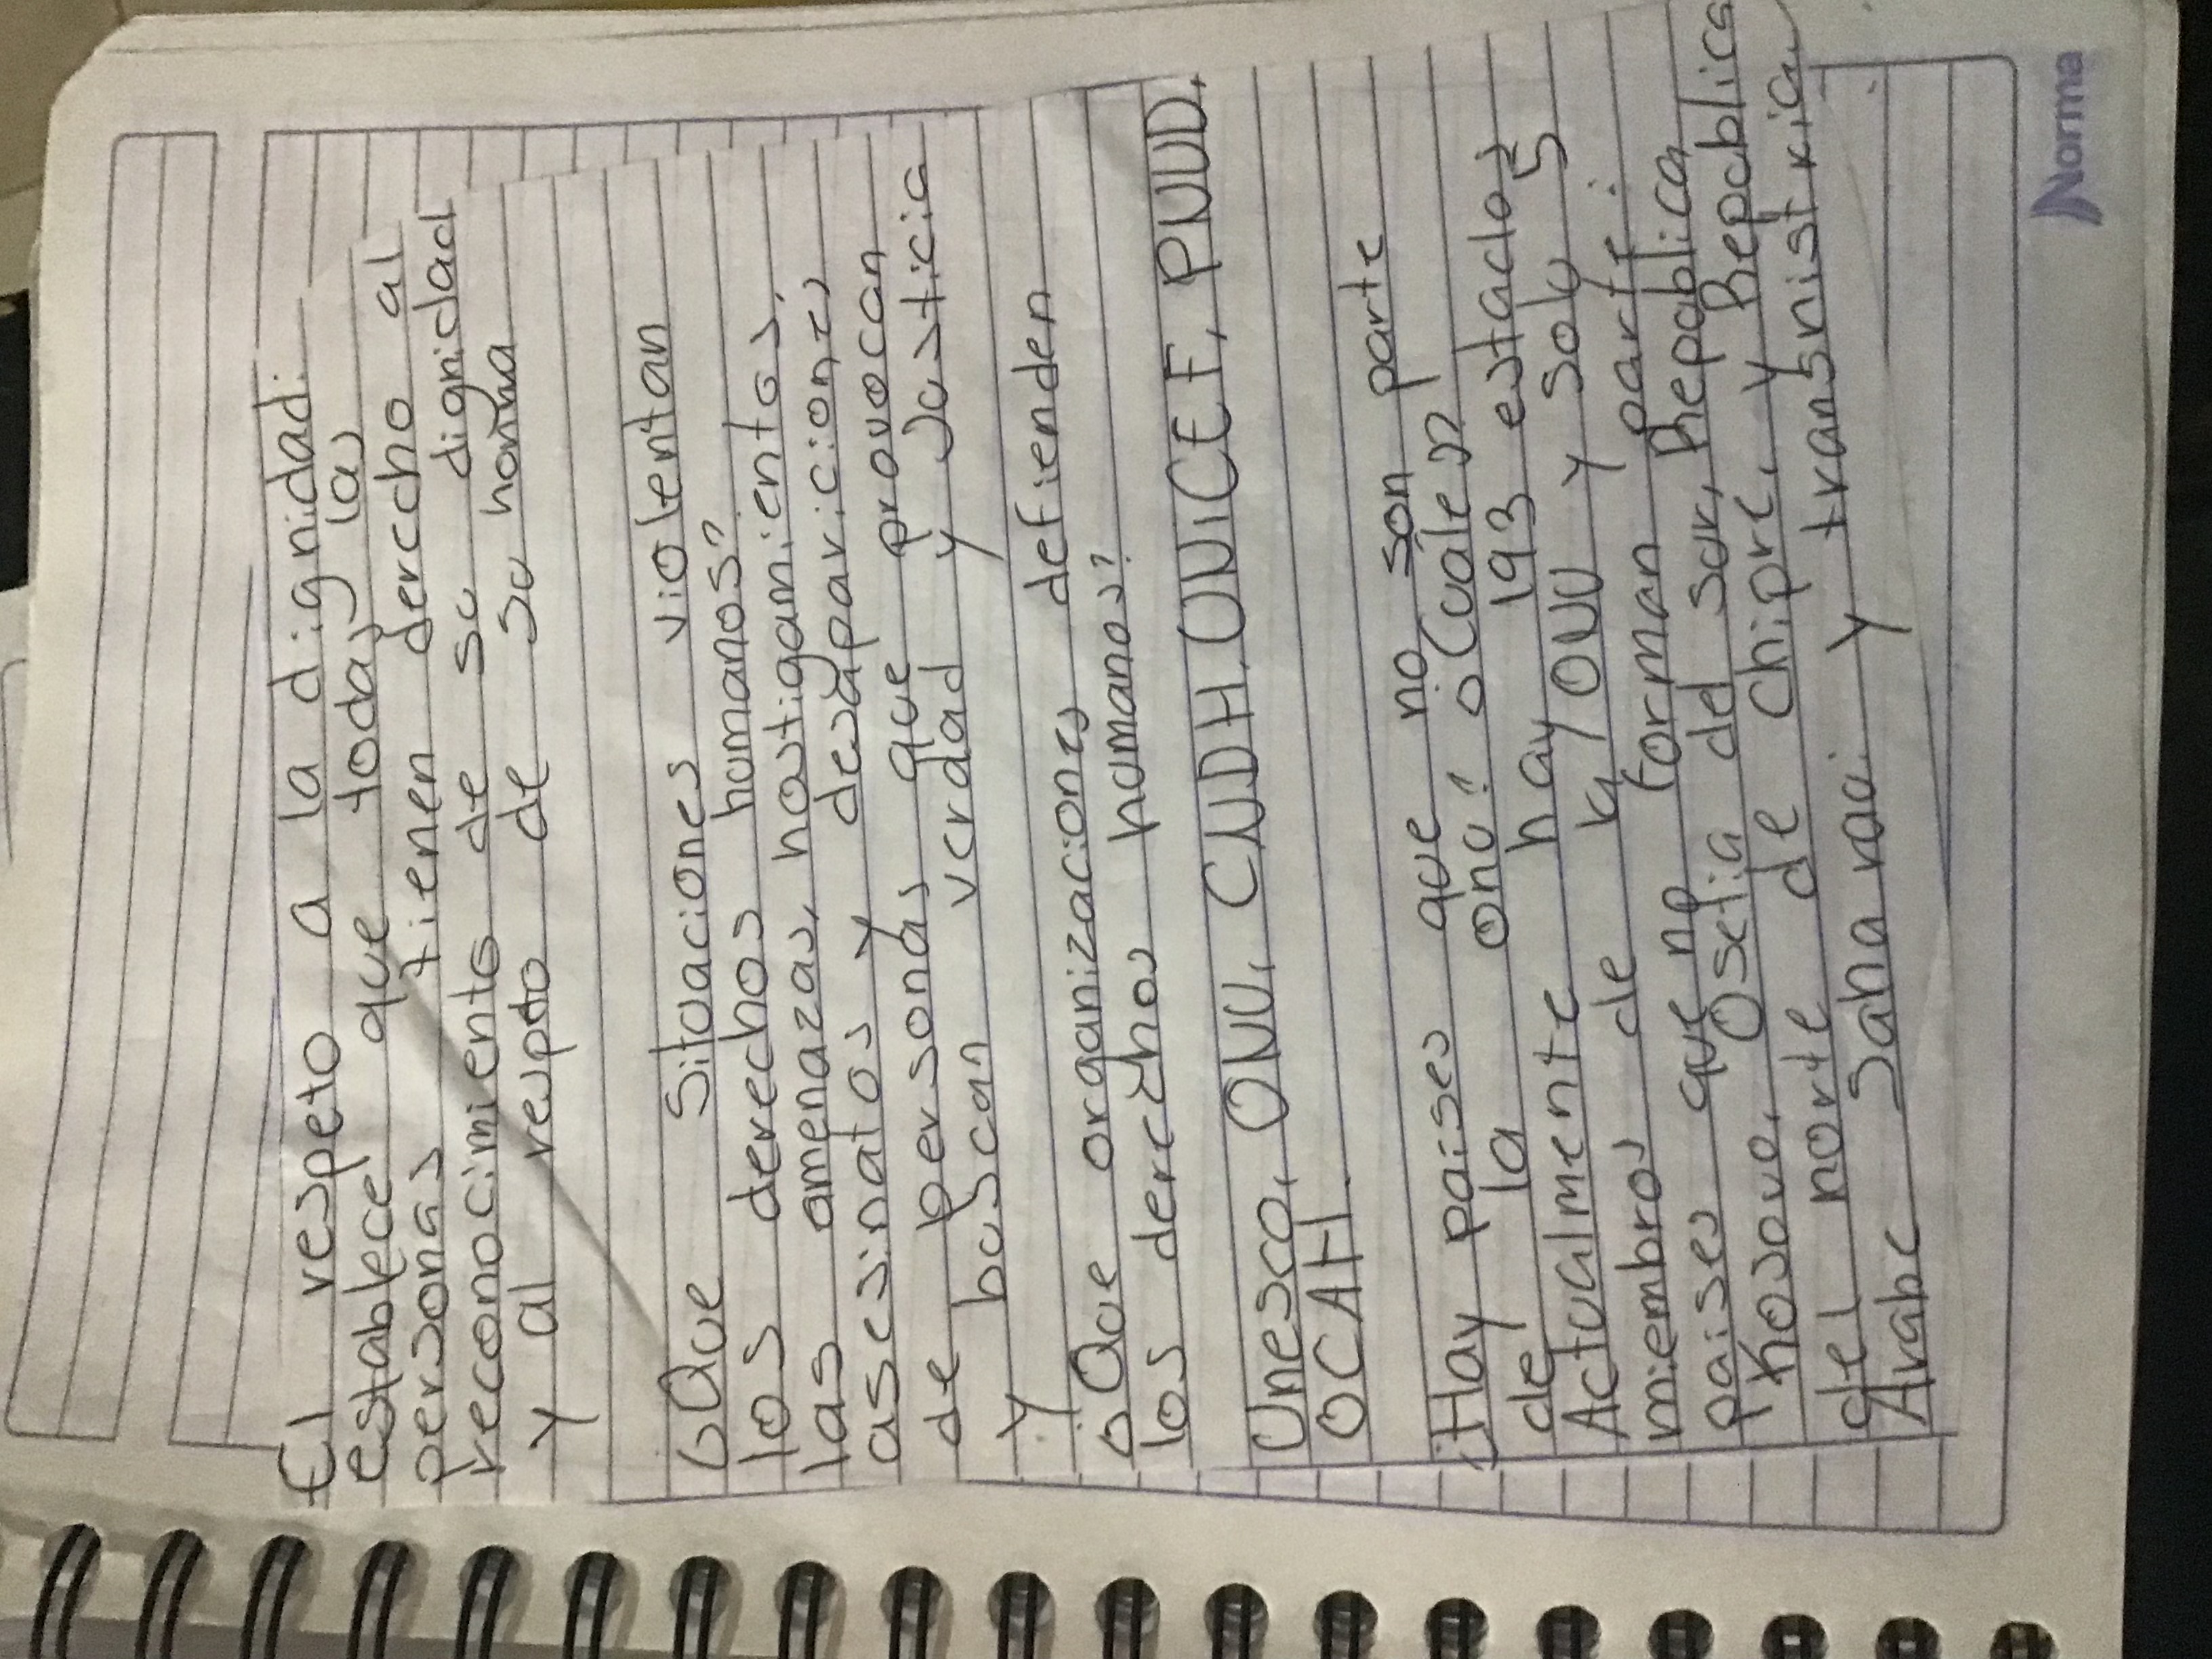 El respeto a la dignidad:
establece que todas las
personas tienen derecho al
reconocimiento de su dignidad
y al respeto de su honra
¿Que situaciones violentan
los derechos humanos?
las amenazas, hostigamientos,
asesinatos y desapariciones
de personas que provocan
y buscan verdad y Justicia
¿Que organizaciones defienden
los derechos humanos?
Unesco, ONU, CNDH, UNICEF, PNUD,
OCAH.
¿Hay paises que no son parte
de la onu? ¿Cuales?
Actualmente hay 193 estados
miembros de la ONU y solo 5
paises que no forman parte:
Osetia del sur, Republica
Kosovo, Republica
del norte de Chipre, y
Arabe Saharaui y transnistria
Norma